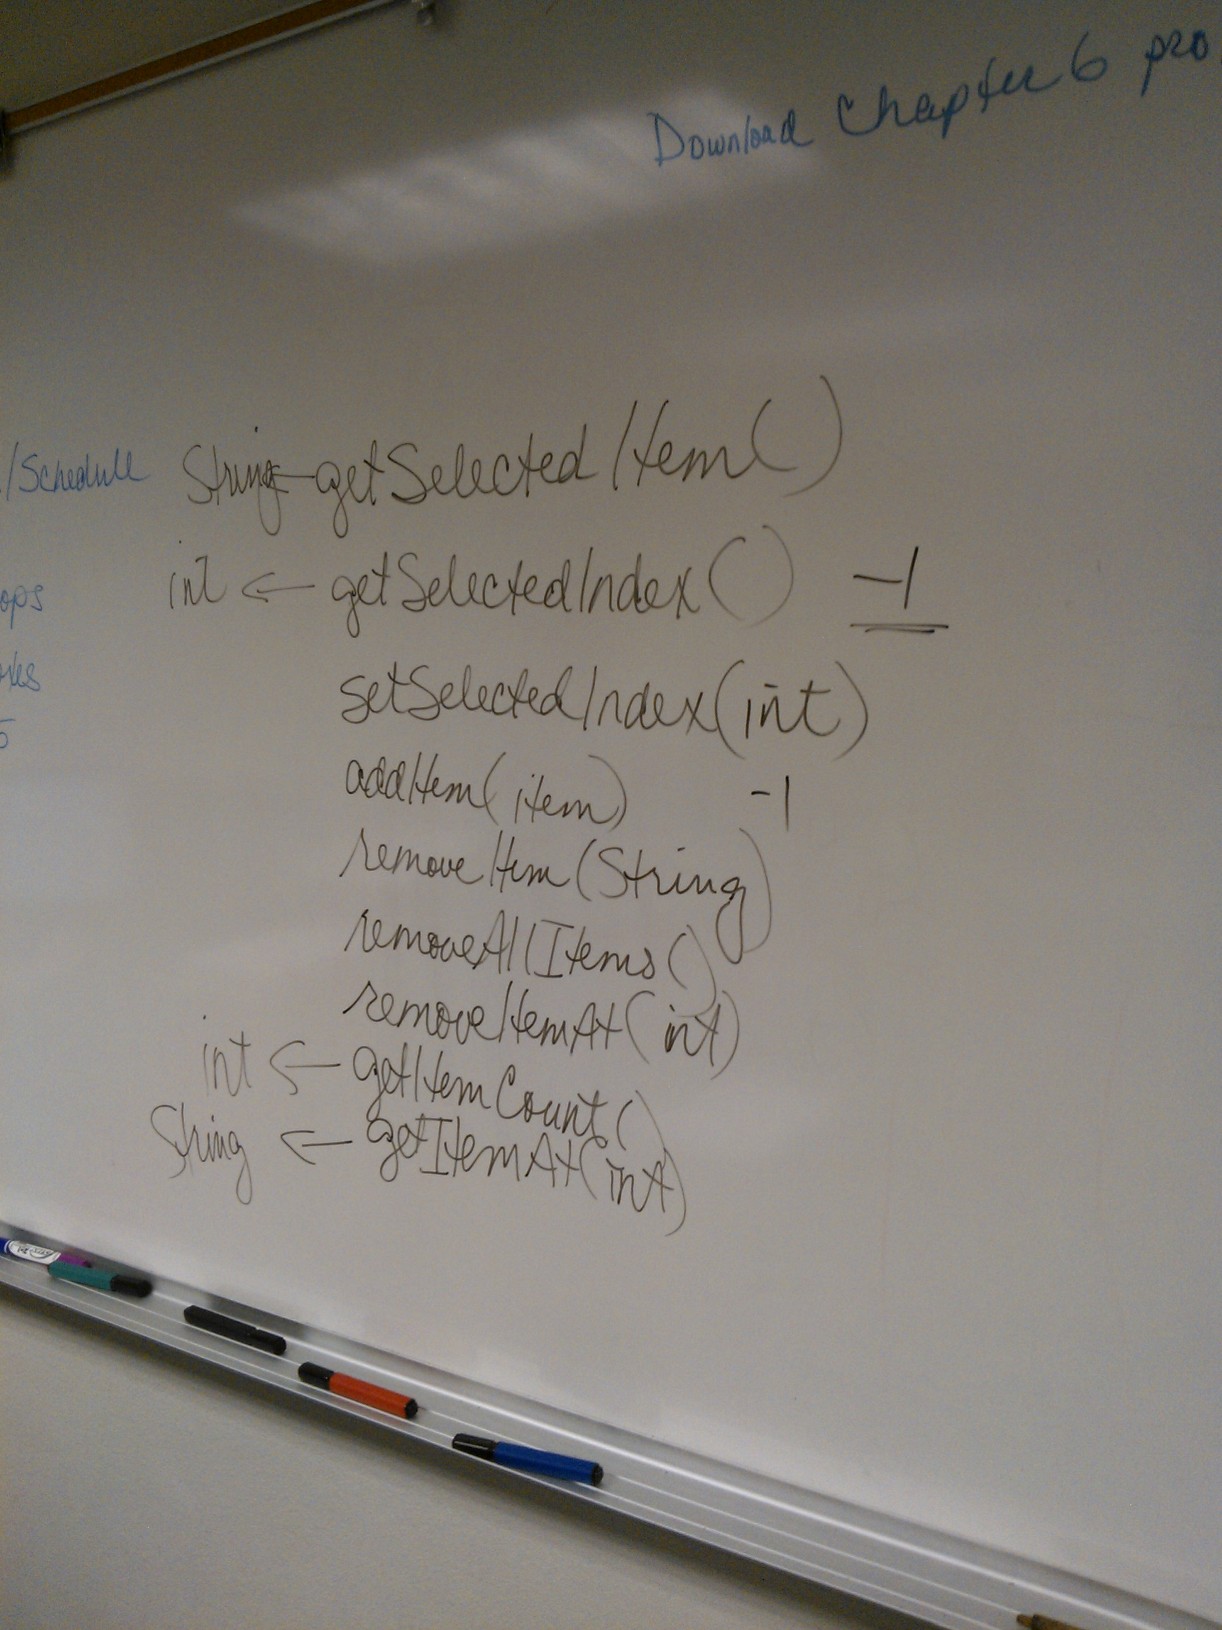 Download Chapter 6 pro
/Schedule
ops
5
String ← getSelectedItem()
int ← getSelectedIndex() -1
setSelectedIndex(int)
addItem(item) -1
removeItem(String)
removeAllItems()
removeItemAt(int)
int ← getItemCount()
String ← getItemAt(int)